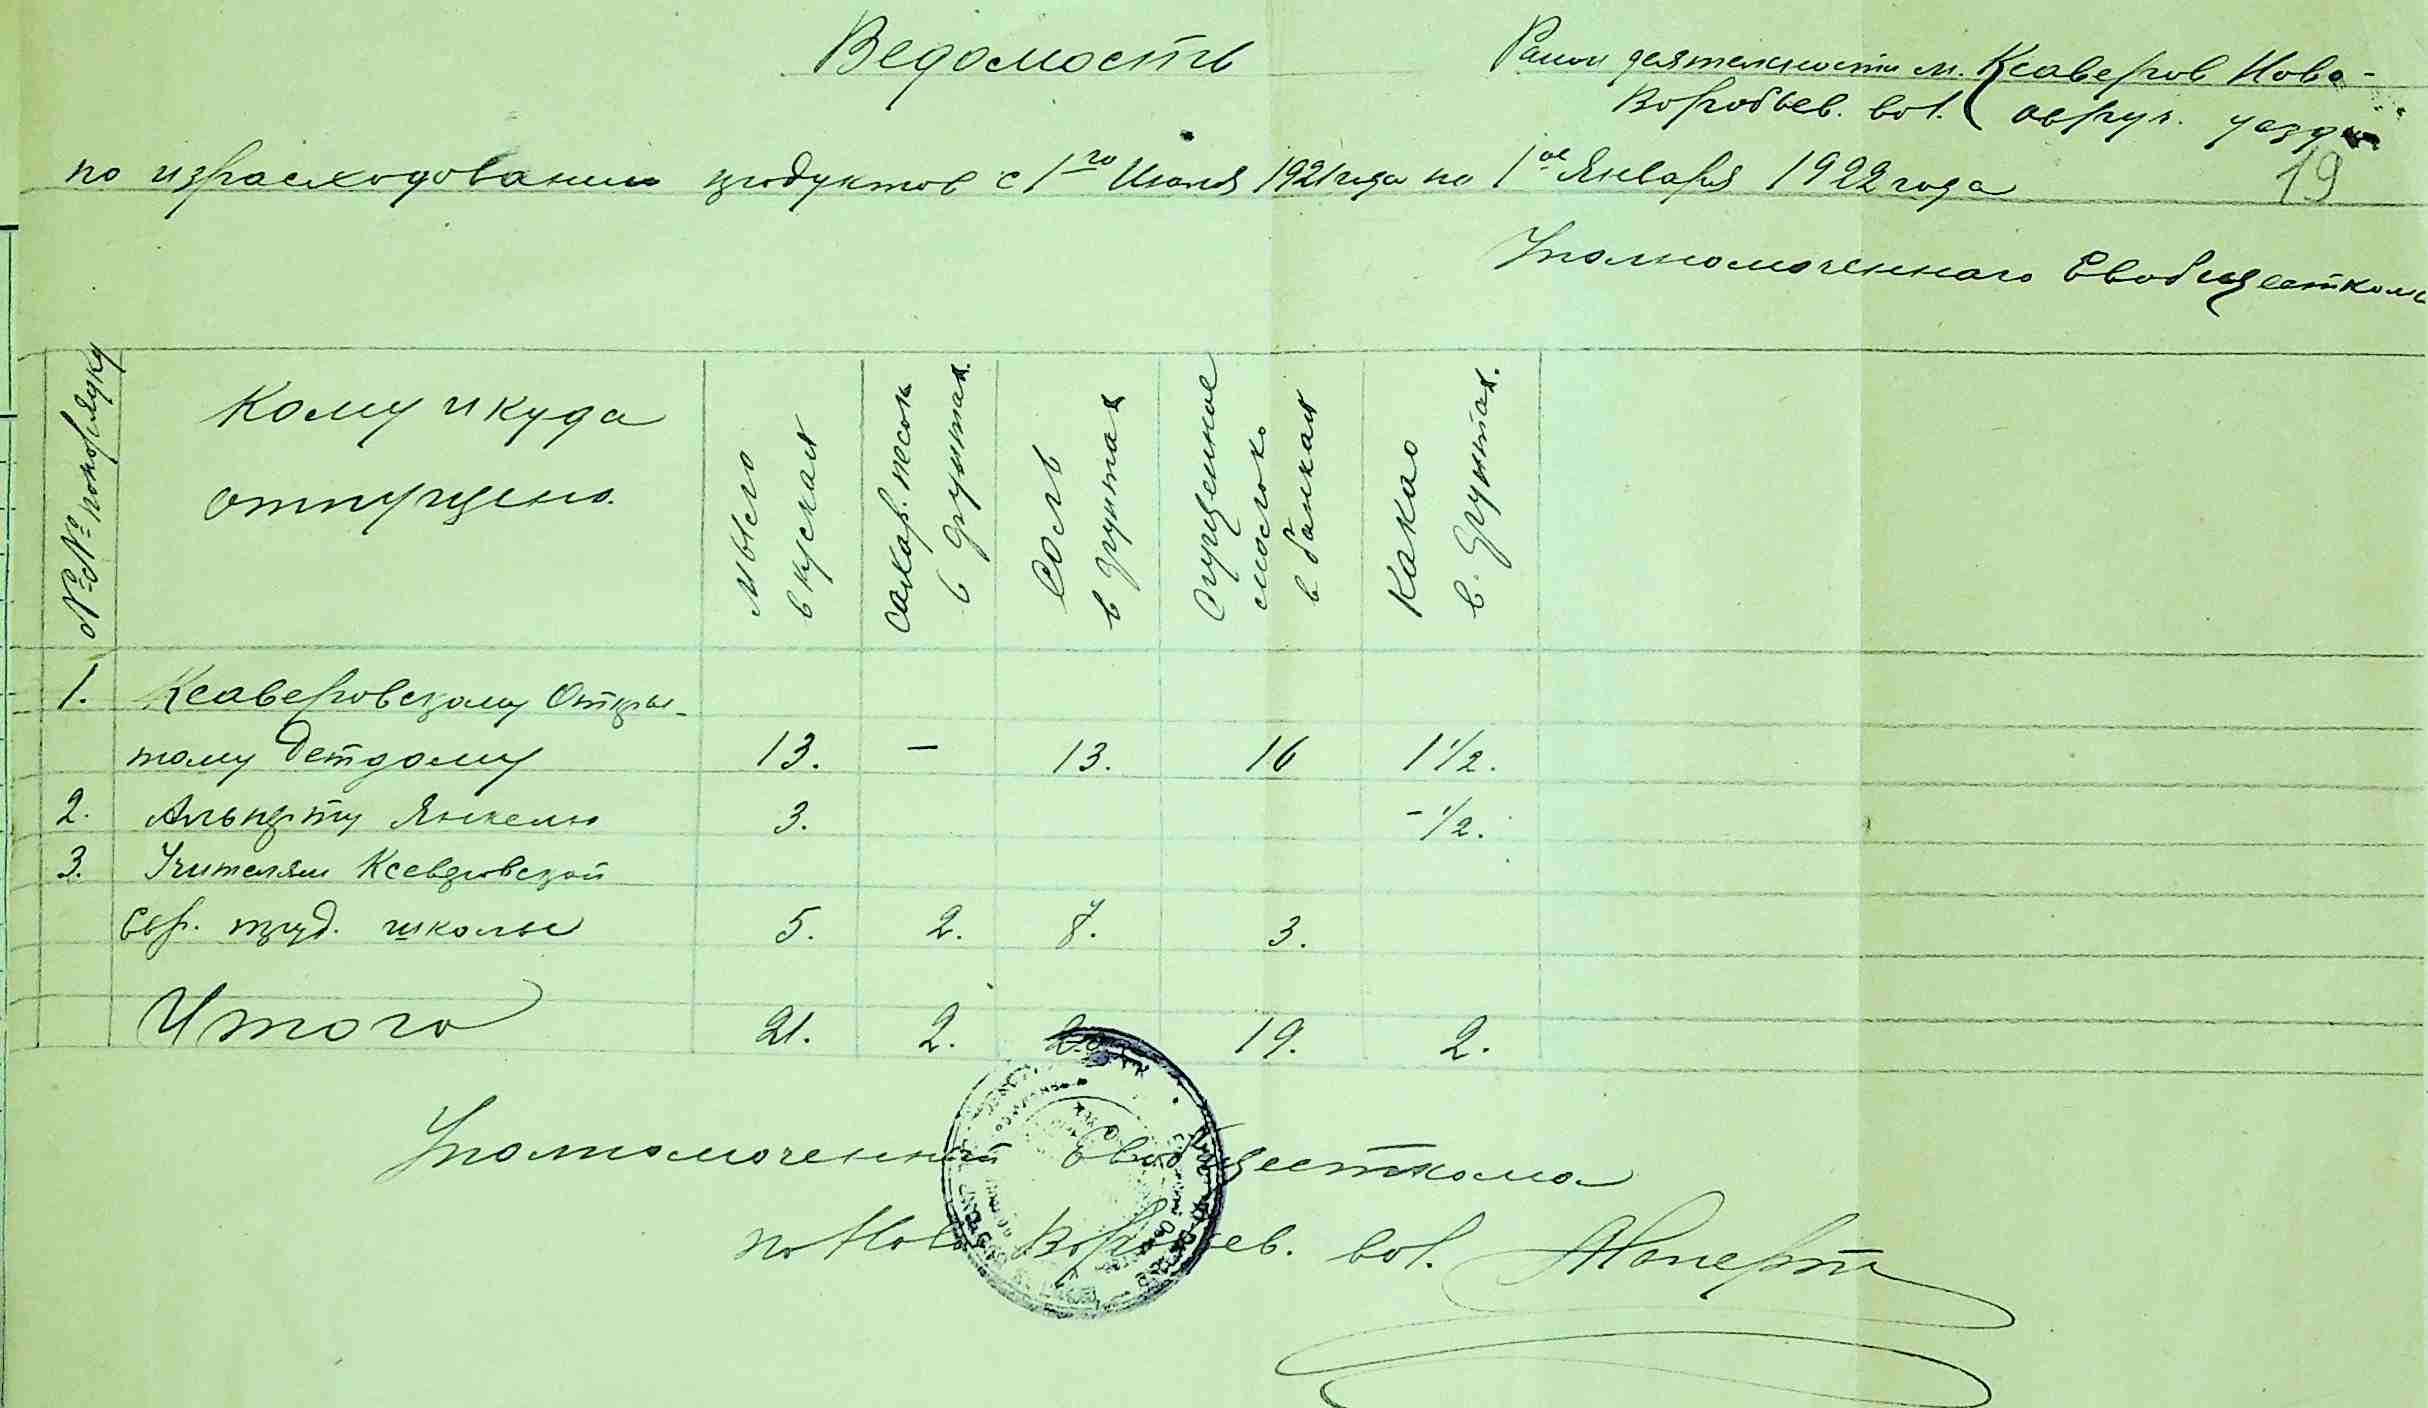 Ведомость
Раион деятельности м. Ксаверов Ново-
Воробьев. вол. Овруч. уезда
по израсходованию продуктов с 1го Июля 1921 года по 1ое Января 1922 года
19
Уполномоченнаго Евобщесткома
№№ по порядку
Кому и куда
отпущено.
Мыло
в кусках
Сахар. песок
в фунтах.
Соль
в фунтах
Сгущенное
молоко
в банках
Какао
в фунтах.
1. Ксаверовскому Откры-
тому Детдому 13. — 13. 16 1 1/2.
2. Янкелю 3. - 1/2.
3. Учителям Ксаверовской
Евр. труд. школы 5. 2. 7. 3.
Итого 21. 2. 20 19. 2.
Уполномоченный Евобщесткома
по Ново Воробьев. вол.